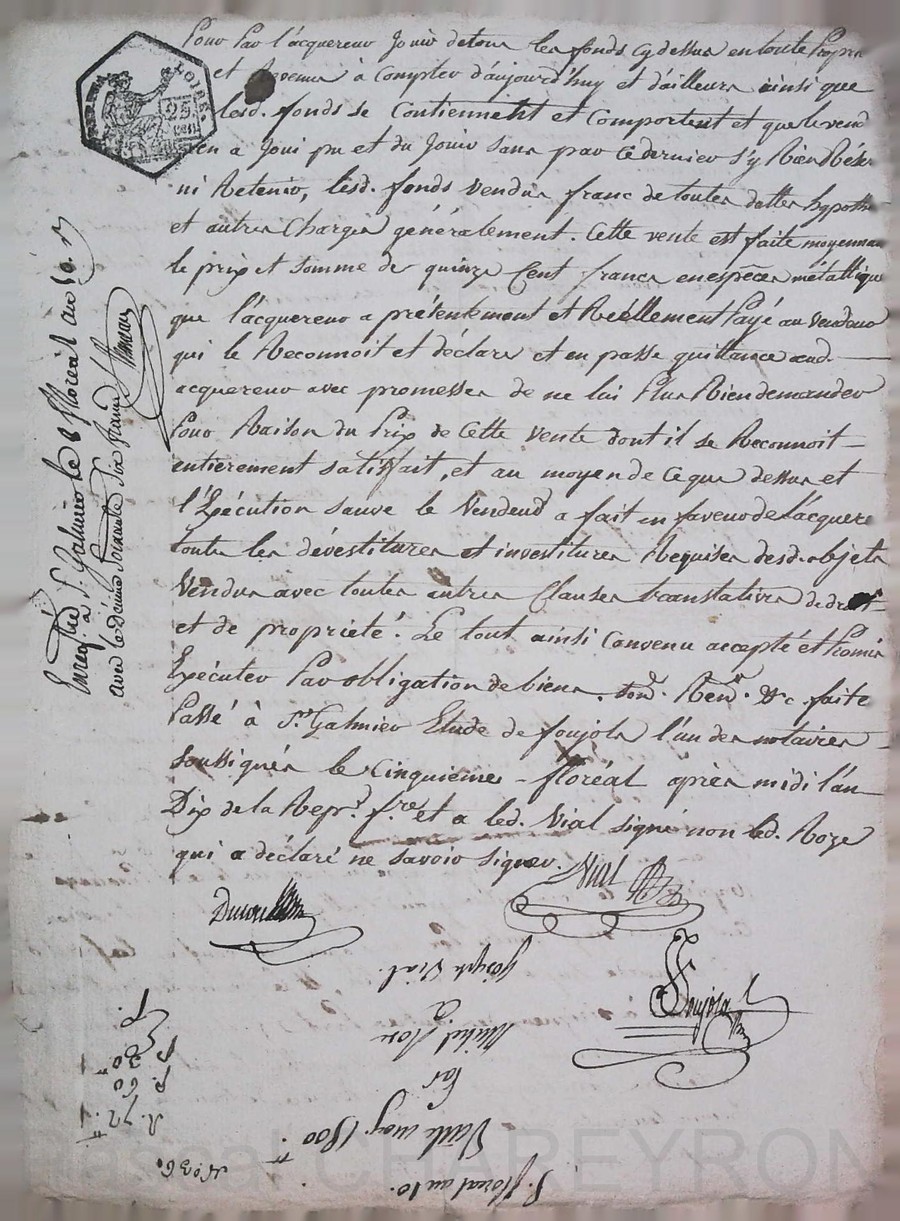 Pour Par l'acquereur Jouir de tous les fonds cy dessus en toute Propri
et Revenus à Compter d'aujourd'huy et d'ailleurs ainsi que
lesd. fonds se Contiennent et Comportent et que le vend
en a Joui pu et du Jouir sans par ce dernier s'y Rien Rése
ni Retenir, lesd. fonds vendus franc de toutes dettes hypoth
et autres Charges généralement. Cette vente est faite moyennan
le prix et somme de quinze Cent francs en espèces métallique
que l'acquereur a présentement et Réellement Payé au vendeur
qui le Reconnoit et déclare et en passe quittance aud.
acquereur avec promesses de ne lui Plus Rien demander
Pour Raison du Prix de Cette vente dont il se Reconnoit
entierement satisfait, et au moyen de ce que dessus et
l'Exécution sauve le Vendeur a fait en faveur de l'acquere
toutes les dévestitures et investitures Requises desd. objets
Vendus avec toutes autres Clauses translatives de droit
et de propriété. Le tout ainsi Convenu accepté et Promis
Exécuter Par obligation de biens. Soud. Ren.on &c. faite
Passé à St. Galmier Etude de foujols l'un des notaires
soussignés le Cinquieme floréal après midi l'an
Dix de la Rep.e f.re et a led. Vial signé non led. Roze
qui a déclaré ne savoir signer.
Vial
Foujols
Enreg. à St. Galmier le 8 floréal an 10. R
avec le décime Soixante Six francs
5. floreal an 10.
Vente moy. 1500.tt
Par
Michel Roze
à
Joseph Vial.
25
LOIRE.
Pascal CHAREYRON